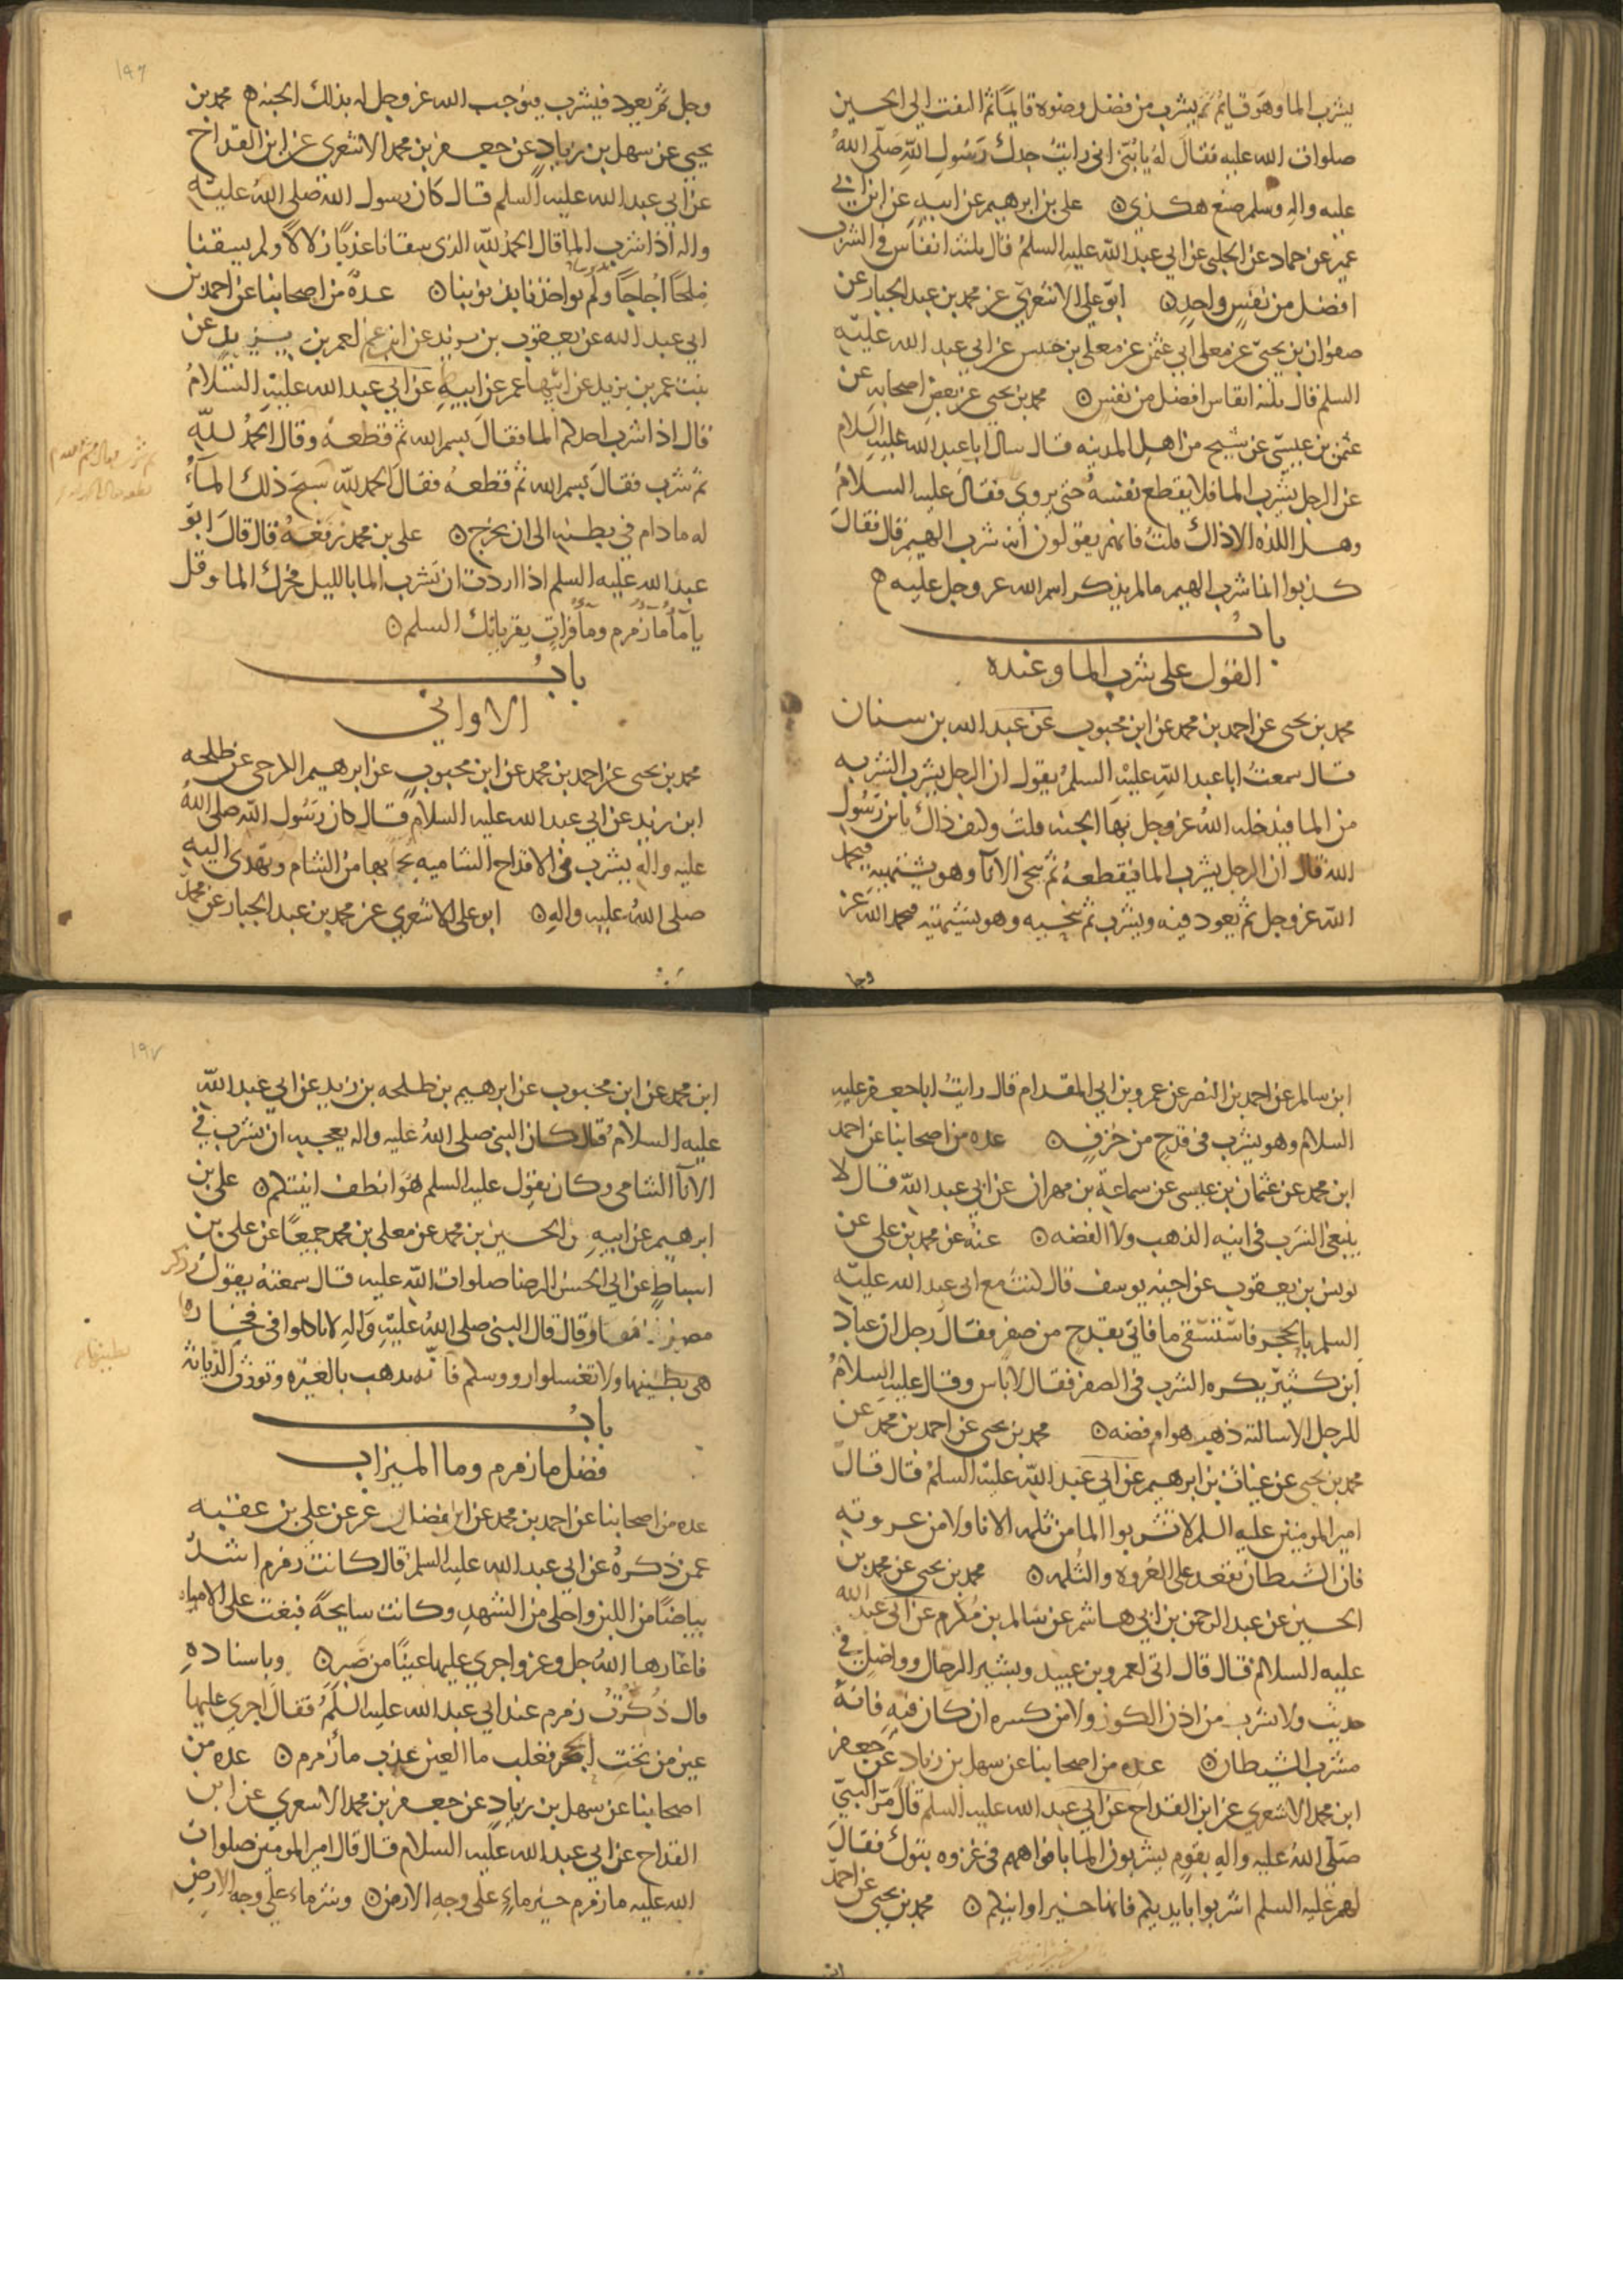 يشرب الما وهو قايم ثم يشرب من فضل وضوه قايمًا ثم التفت الي الحسين
صلوات الله عليه فقال له يا بُنَيّ اني رايتُ جدك رَسُول اللهِ صَلّى اللهُ
عليه واله وسلم صنع هكذي ٥ علي بن ابرهيم عن ابيه عن ابن ابي
عمير عن حماد عن الحلبي عن ابي عبد اللهِ عليه السلمُ قال ثلثه انفاس في الشرب
افضل من نفسٍ واحدٍ ٥ ابو علي الاشعري عن محمد بن عبد الجبار عن
صفوان بن يحيى عن معلى ابي عثمن عن معلى بن خنيس عن ابي عبد الله عليه
السلم قال ثلثه انفاس افضل من نفس ٥ محمد بن يحيى عن بعض اصحابه عن
عثمن بن عيسى عن شيخ من اهل المدينه قال سال ابا عبد الله عليه السلام
عن الرجل يشرب الما فلا يقطع نفسهُ حتى يروى فقال عليه السلامُ
وهل اللذه الا ذاك قلتُ فانهم يقولون انه شرب الهيم قال فقال
كذبوا انما شرب الهيم ما لم يذكر اسم الله عز وجل عليه ه
بابُ
القول على شرب الما وعنده
محمد بن يحيى عن احمد بن محمد عن ابن محبوب عن عبد الله بن سنان
قال سمعتُ ابا عبد اللهِ عليْهِ السلمُ يقول ان الرجل يشرب الشربه
من الما فيدخله اللهُ عز وجل بها الجنه قلت وكيف ذاك يا بن رَسُول
الله قال ان الرجل يشرب الما فيقطعهُ ثم ينحي الانآ وهو يشتهيه فيحمد
اللهَ عز وجل ثم يعود فيه ويشرب ثم ينحيه وهو يشتهيه فيحمد الله عز
وجل
وجل ثم يعود فيشرب فيوجب الله عز وجل له بذلك الجنه ه محمد بن
يحيى عن سهل بن زيادٍ عن جعفر بن محمد الاشعري عن ابن القداح
عن ابي عبد الله عليه السلم قال كان رسول الله صلى الله عليه
واله اذا شرب الما قال الحمدُ للهِ الذي سقانا عذبًا زلالًا ولم يسقنا
مِلحًا أُجاجًا ولم يواخذنا بذنوبنا ٥ عدةٌ من اصحابنا عن احمد بن
ابي عبد الله عن يعقوب بن يزيد عن ابن عم لعمر بن يزيد عن
بنت عمر بن يزيد عن ابيها عمر عن ابيهِ عن ابي عبد الله عليه السلامُ
قال اذا شرب احدكم الما فقال بسم الله ثم قطعهُ وقال الحمدُ للهِ
ثم شرب فقال بسم الله ثم قطعهُ فقال الحمد للهِ سَبحَ ذلك المآءُ
له ما دام في بطنه الى ان يخرج ٥ علي بن محمد رَفَعَهُ قال قالَ ابو
عبد الله عليه السلم اذا اردت ان تشرب الما بالليل فحرك الما وقل
يا مآ مآ زمزم ومآ فراتٍ يقريانك السلم ٥
بابُ
الاواني
محمد بن يحيى عن احمد بن محمد عن ابن محبوب عن ابرهيم الكرخي عن طلحه
ابن زيد عن ابي عبد الله عليه السلام قال كان رَسُول اللهِ صلى اللهُ
عليه واله يشرب في الاقداح الشاميه يجآ بها من الشام وتهدى اليهِ
صلى اللهُ عليه والهِ ٥ ابو علي الاشعري عن محمد بن عبد الجبار عن محمد
ابن سالم عن احمد بن النضر عن عمرو بن ابي المقدام قال رايتُ ابا جعفر عليه
السلام وهو يشرب في قدحٍ من خزفٍ ٥ عده من اصحابنا عن احمد
ابن محمد عن عثمان بن عيسى عن سماعة بن مهران عن ابي عبد اللهِ قال لا
ينبغي الشرب في انيه الذهب ولا الفضه ٥ عنْهُ عن محمد بن علي عن
يونس بن يعقوب عن اخيه يوسف قال كنتُ مع ابي عبد الله عليهِ
السلم بالحجر فاستسقى ما فاتي بقدح من صفر فقال رجل ان عباد
ابن كثير يكره الشرب في الصفر فقال لا باس وقال عليه السلامُ
للرجل الا سالته ذهب هو ام فضه ٥ محمد بن يحيى عن احمد بن محمد عن
محمد بن يحيى عن غياث بن ابرهيم عن ابي عبد اللهِ عليه السلمُ قال قال
امير المومنين عليه السلم لا تشربوا الما من ثلمه الانا ولا من عروته
فان الشيطان يقعد على العُروه والثُلمه ٥ محمد بن يحيى عن محمد بن
الحسين عن عبد الرحمن بن ابي هاشم عن سالم بن مُكرم عن ابي عبد الله
عليه السلام قال قال اتى لعمرو بن عبيد وبشير الرحال وواصل في
حديث ولا تشرب من اذن الكوز ولا من كسره ان كان فيه فانهُ
مشرب الشيطان ٥ عده من اصحابنا عن سهل بن زياد عن جعفر
ابن محمد الاشعري عن ابن القداح عن ابي عبد الله عليه السلم قال مرّ النبيّ
صَلّى اللهُ عليه والهِ بقومٍ يشربون الما بافواههم في غزوه تبوك فقالَ
لهم عليه السلم اشربوا بايديكم فانها خير اوانيكم ٥ محمد بن يحيى عن احمد
ابن
ابن محمد عن ابن محبوب عن ابرهيم بن طلحه بن زيد عن ابي عبد اللهِ
عليه السلامُ قال كان النبي صلى اللهُ عليه واله يعجبه ان يشرب في
الانآ الشامي وكان يقول عليه السلم هُوَ انظف انيتكم ٥ علي بن
ابرهيم عن ابيهِ والحسين بن محمد عن معلى بن محمد جميعًا عن علي بن
اسباطٍ عن ابي الحسن الرضا صلوات اللهِ عليه قال سمعتهُ يقول وذكر
مصر فقال قال النبي صلى اللهُ عليهِ وَالهِ لا تاكلوا في فخارها
بطينها ولا تغسلوا رووسكم فانّه يذهب بالغيره وتورث الدياثة
بابُ
فضل ما زمزم وما الميزاب
عده من اصحابنا عن احمد بن محمد عن ابن فضال عن علي بن عقبه
عمن ذكرهُ عن ابي عبد الله عليه السلم قال كانت زمزم اشدُّ
بياضًا من اللبن واحلى من الشهدِ وكانت سايحةً فبغت على الامياه
فاغارها اللهُ جل وعز واجرى عليها عينًا من صَبِرٍ ٥ وباسنادهِ
قال ذُكِرَتْ زمزم عند ابي عبد الله عليه السلمُ فقال اجري عليها
عين من تحتِ الحجر فغلب ما العين عذب مآ زمزم ٥ عده من
اصحابنا عن سهل بن زيادٍ عن جعفر بن محمد الاشعري عن ابن
القداح عن ابي عبد الله عليه السلام قال قال امير المومنين صلوات
الله عليه ما زمزم خير ماءٍ على وجهِ الارض ٥ وشر ماء على وجه الارض
١٩٦
١٩٧